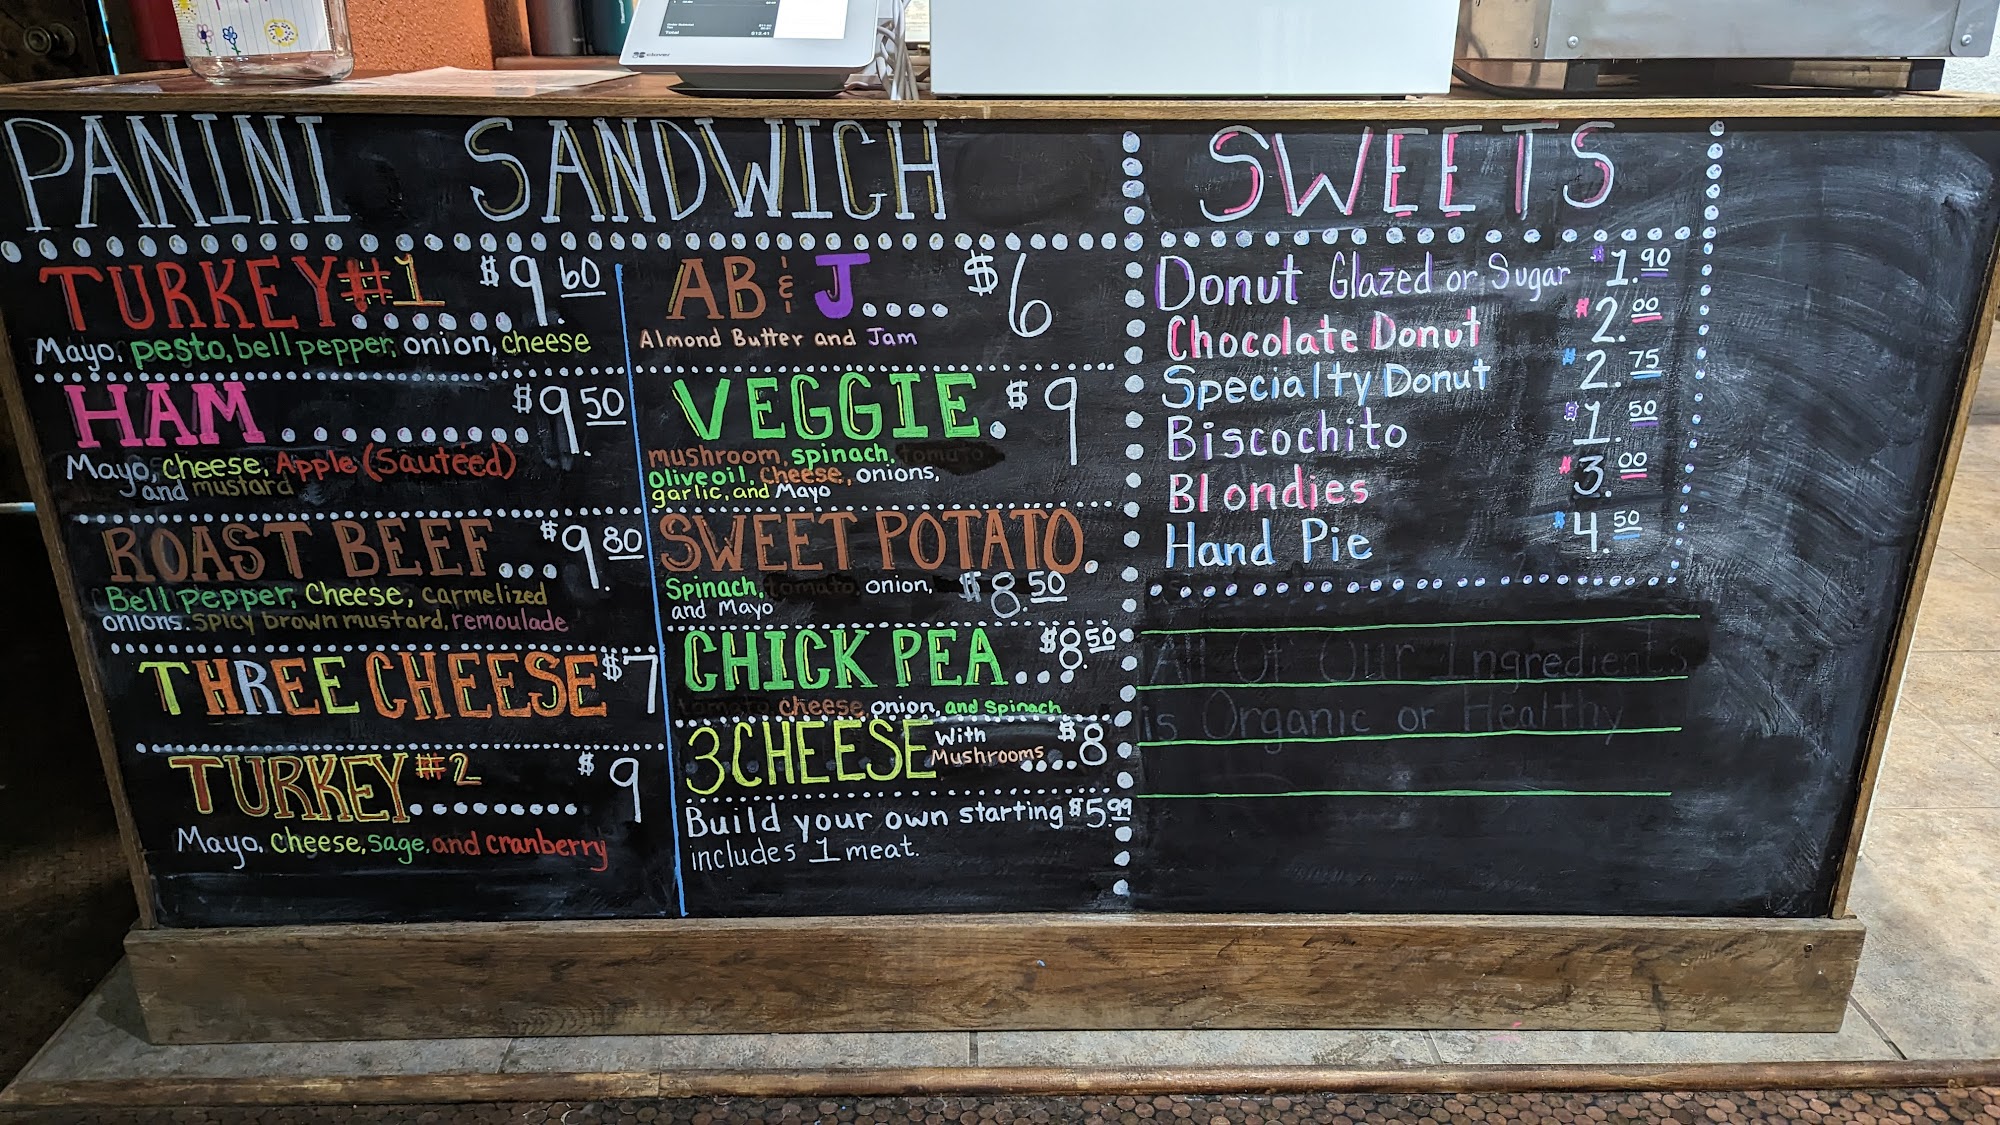 PANINI SANDWICH
TURKEY #1 $9.60
Mayo, pesto, bell pepper, onion, cheese
HAM .......... $9.50
Mayo, cheese, Apple (Sautéed)
and mustard
ROAST BEEF... $9.80
Bell pepper, Cheese, carmelized
onions, spicy brown mustard, remoulade
THREE CHEESE $7
TURKEY #2 .......... $9
Mayo, cheese, sage, and cranberry
AB & J.... $6
Almond Butter and Jam
VEGGIE. $9
mushroom, spinach, tomato
Olive oil, Cheese, onions,
garlic, and Mayo
SWEET POTATO.
Spinach, tomato, onion, $8.50
and Mayo
CHICK PEA... $8.50
tomato cheese, onion, and spinach
3 CHEESE With Mushrooms .... $8
Build your own starting $5.99
includes 1 meat.
SWEETS
Donut Glazed or Sugar $1.90
Chocolate Donut $2.00
Specialty Donut $2.75
Biscochito $1.50
Blondies $3.00
Hand Pie $4.50
All Of Our Ingredients
is Organic or Healthy
Total $12.41
clover